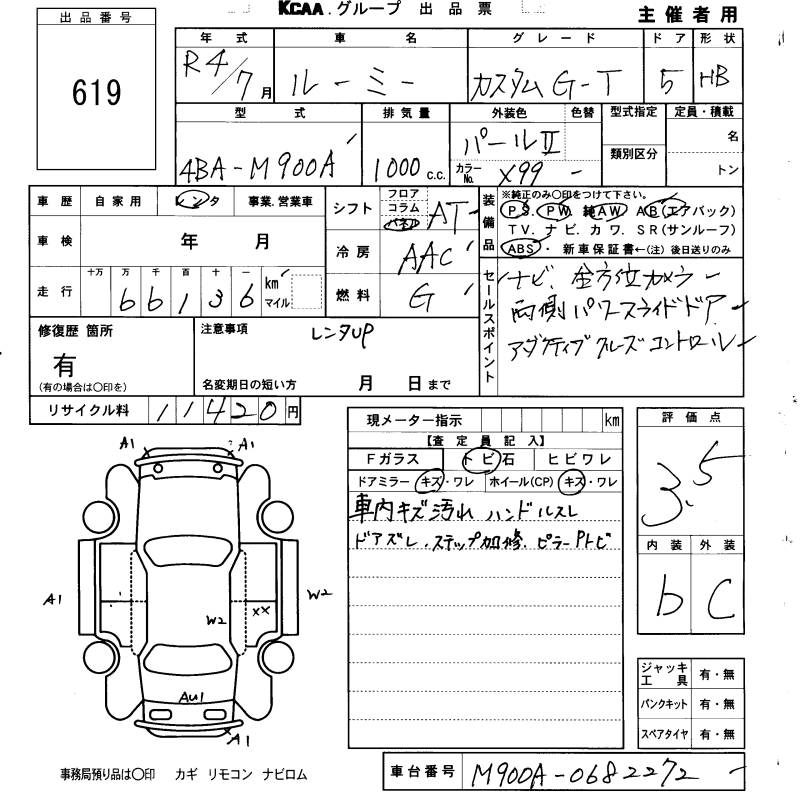 KCAA.グループ 出品票
主催者用
出品番号
619
年式 車名 グレード ドア 形状
R4/7月 ルーミー カスタムG-T 5 HB
型式 排気量 外装色 色替 型式指定 定員・積載
4BA-M900A 1000 c.c. パールⅡ カラーNo. X99 - 類別区分 名 トン
車歴 自家用 レンタ 事業.営業車
車検 年 月
走行 十万 万 千 百 十 一
66136 km マイル
シフト フロア コラム パネル AT
冷房 AAC
燃料 G
装備品 ※純正のみ〇印をつけて下さい。
PS. PW. 純AW AB(エアバック)
TV. ナビ. カワ. SR(サンルーフ)
ABS・ 新車保証書←(注) 後日送りのみ
セールスポイント
ナビ. 全方位カメラ
両側パワースライドドア
アダプティブクルーズコントロール
修復歴 箇所
有
(有の場合は〇印を)
注意事項 レンタUP
名変期日の短い方 月 日まで
リサイクル料 11420円
現メーター指示 km
【査定員記入】
Fガラス トビ石 ヒビワレ
ドアミラー キズ・ワレ ホイール(CP) キズ・ワレ
車内キズ汚れ ハンドルスレ
ドアズレ.ステップ加修.ピラーPトビ
評価点
3.5
内装 外装
b C
A1 A1
A1 W2
W2 XX
AU1
A1
ジャッキ工具 有・無
パンクキット 有・無
スペアタイヤ 有・無
事務局預り品は〇印 カギ リモコン ナビロム
車台番号 M900A-0682272